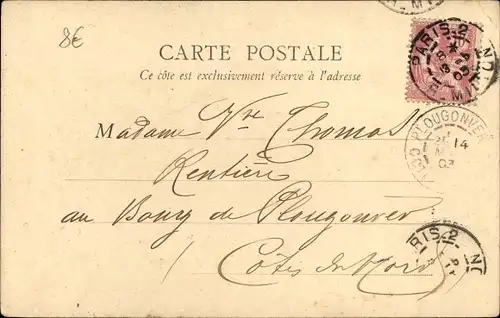 8€
CARTE POSTALE
Ce côté est exclusivement réservé à l'adresse
PARIS.2
PLOUGONVER
14
03
Madame Vve Thomas
Rentière
au Bourg de Plougonver
Côtes du Nord